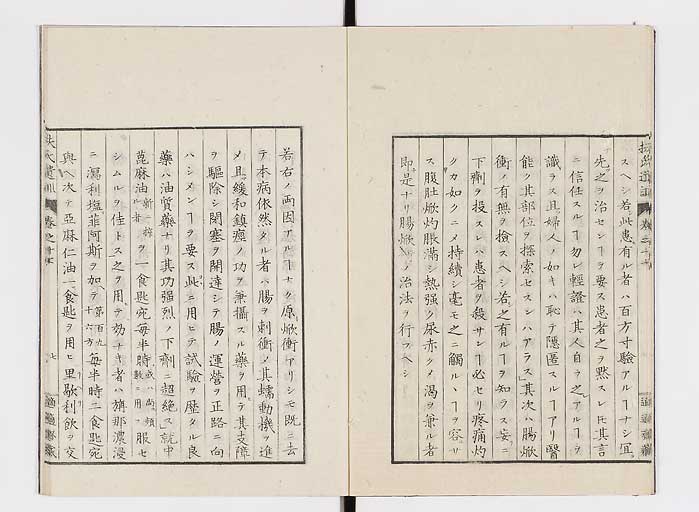 スヘシ若此患有ル者ハ百方寸驗アルヿナシ冝
先之ヲ治センヿヲ要ス患者之ヲ黙スレ𪜈其言
ニ信任スルヿ勿レ輕證ハ其人自ラ之アルヿヲ
識ラス且婦人ノ如キハ恥テ隱匿スルヿアリ醫
能ク其部位ヲ探索セスンハアラス其次ハ腸焮
衝ノ有無ヲ撿スヘシ若之有ルヿヲ知ラス妄ニ
下劑ヲ投スレハ患者ヲ殺サンヿ必セリ疼痛灼
クカ如クニメ持續シ毫モ之ニ觸ルヽヿヲ容サ
ス腹肚焮灼脹滿シ熱强ク尿赤クメ渇ヲ兼ル者
即是ナリ腸焮ノ治法ヲ行フヘシ
若右ノ兩因アルヿナク原焮衝アリシモ既ニ去
テ本病依然タル者ハ腸ヲ刺衝メ其蠕動機ヲ進
メ且緩和鎭痙ノ功ヲ兼攝スル藥ヲ用テ其支障
ヲ驅除シ閉塞ヲ開達シテ腸ノ運營ヲ正路ニ向
ハシメンヿヲ要ス此ニ用ヒテ試驗ヲ歴タル良
藥ハ油質藥ナリ其功强烈ノ下劑ニ超絶ス就中
蓖麻油新ニ搾ル者ヲ一食匙宛毎半時或ハ尚頻數ニ用フ服セ
シムルヲ佳トス之ヲ用テ効ナキ者ハ旃那濃浸
ニ瀉利塩菲阿斯ヲ加テ第百九十六方毎半時二食匙宛
與ヘ次テ亞麻仁油一食匙ヲ用ヒ里歇利飮ヲ交
七